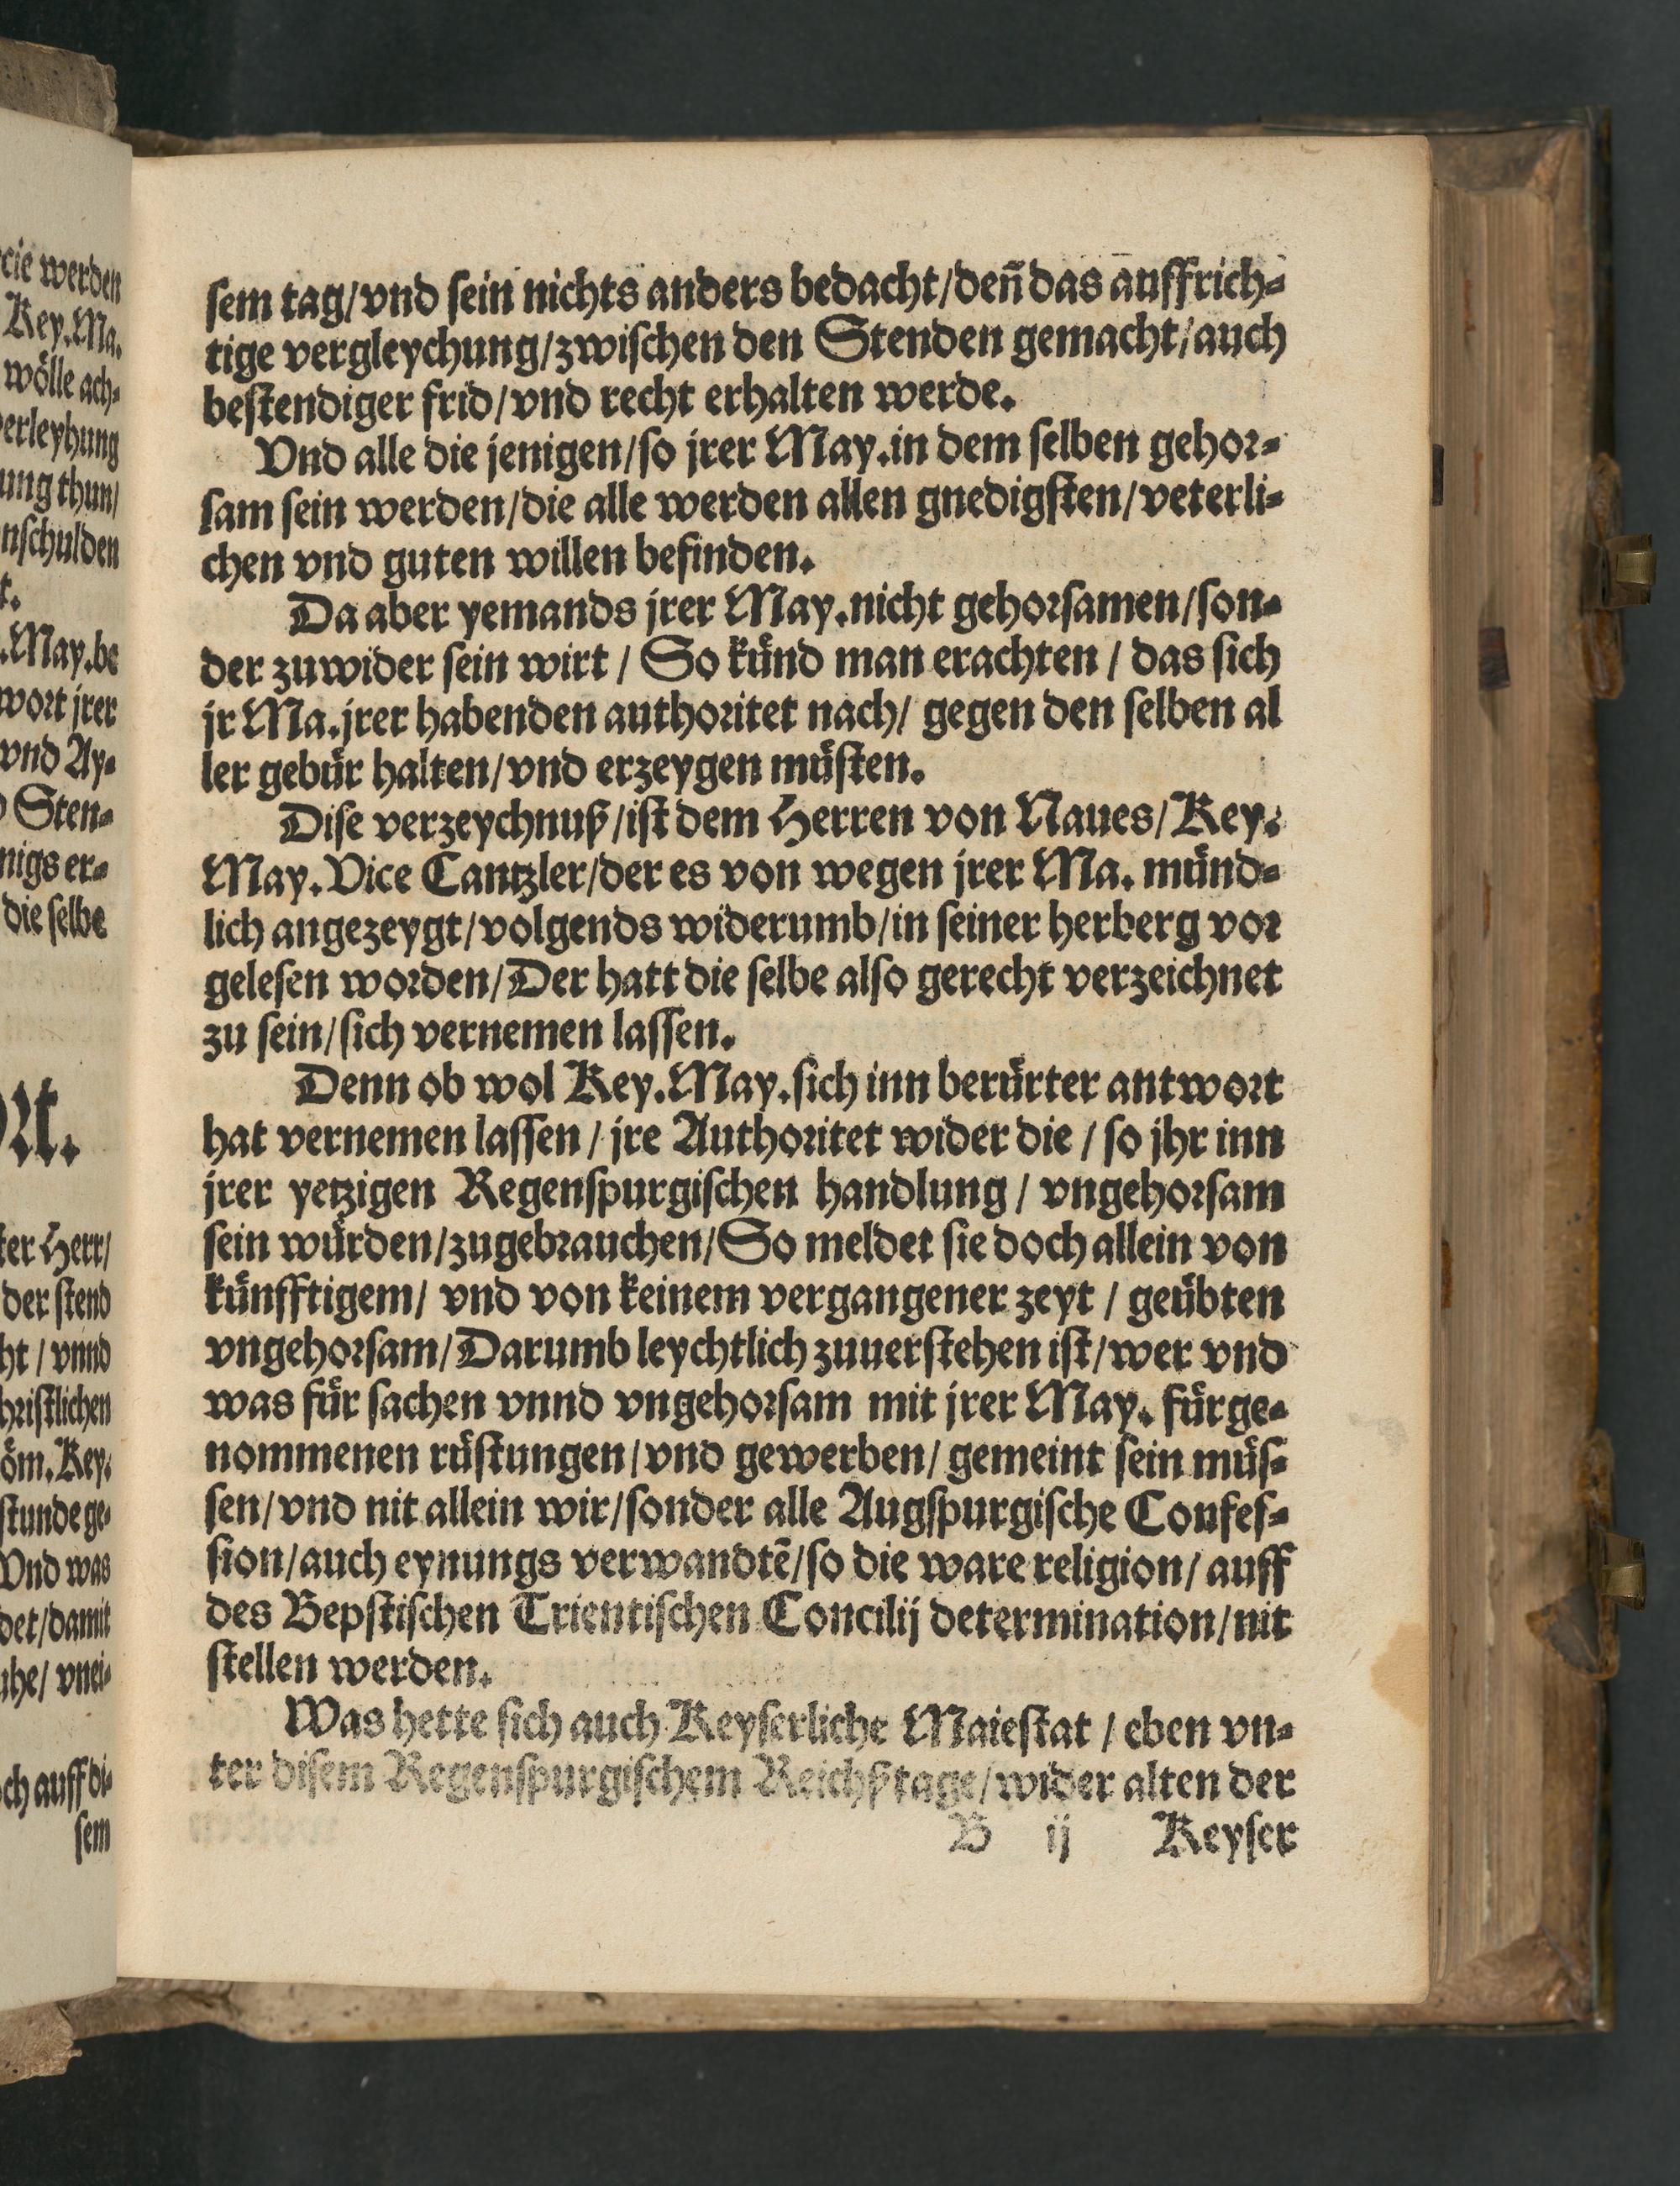 cie werden
Key. Ma.
wölle ach⸗
erleyhung
ung thun/
nschulden
t.
. May. be
wort jrer
vnd Ay⸗
Sten⸗
nigs er⸗
die selbe
ter Herr/
der stend
ht / vnnd
hristlichen
öm. Key.
stunde ge⸗
Vnd was
det/damit
uhe/ vnei⸗
ch auff di⸗
sem
sem tag/vnd sein nichts anders bedacht/deñ das auffrich⸗
tige vergleychung/zwischen den Stenden gemacht/auch
bestendiger frid/vnd recht erhalten werde.
Vnd alle die jenigen/so jrer May.in dem selben gehor⸗
sam sein werden/die alle werden allen gnedigsten/veterli⸗
chen vnd guten willen befinden.
Da aber yemands jrer May.nicht gehorsamen/son⸗
der zuwider sein wirt / So kuͤnd man erachten / das sich
jr Ma.jrer habenden authoritet nach/ gegen den selben al
ler gebuͤr halten/vnd erzeygen muͤsten.
Dise verzeychnuß/ist dem Herren von Naues/Key.
May. Vice Cantzler/der es von wegen jrer Ma. muͤnd⸗
lich angezeygt/volgends widerumb/in seiner herberg vor
gelesen worden/Der hatt die selbe also gerecht verzeichnet
zu sein/sich vernemen lassen.
Denn ob wol Key.May.sich inn beruͤrter antwort
hat vernemen lassen / jre Authoritet wider die / so jhr inn
jrer yetzigen Regenspurgischen handlung / vngehorsam
sein wuͤrden/zugebrauchen/So meldet sie doch allein von
kuͤnfftigem/ vnd von keinem vergangener zeyt / geuͤbten
vngehorsam/Darumb leychtlich zuuerstehen ist/wer vnd
was fuͤr sachen vnnd vngehorsam mit jrer May. fuͤrge⸗
nommenen ruͤstungen/vnd gewerben/ gemeint sein muͤs⸗
sen/vnd nit allein wir/sonder alle Augspurgische Confes⸗
sion/auch eynungs verwandtē/so die ware religion/ auff
des Bepstischen Trientischen Concilij determination/nit
stellen werden.
Was hette sich auch Keyserliche Maiestat / eben vn⸗
ter disem Regenspurgischem Reichßtage/wider alten der
B ij Keyser